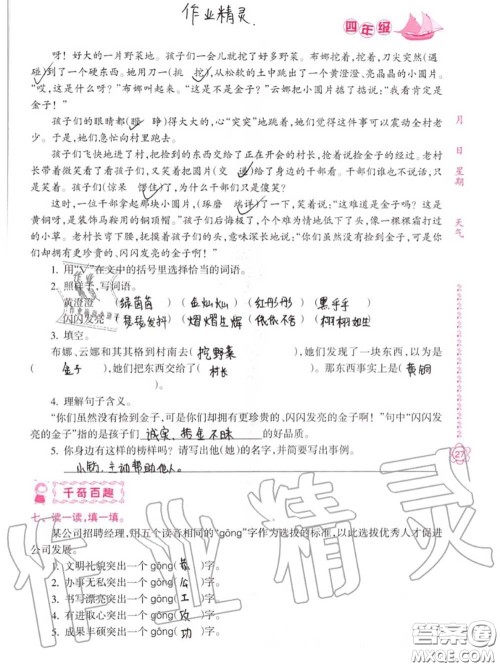 作业精灵.
四年级
呀！好大的一片野菜地。孩子们一会儿就挖了好多野菜。布娜挖着，挖着，刀尖突然（遇
碰）到了一个硬东西。她用刀一（挑 挖），从松软的土中跳出了一个黄澄澄、亮晶晶的小圆片。
“哎，这是什么呀？”布娜叫起来。“这是不是金子？”云娜把小圆片掂了掂说：“我看肯定是
金子！”
孩子们的眼睛都（瞪 睁）得大大的，心“突突”地跳着，她们觉得这件事可以震动全村老
少。于是，她们急忙向村里跑去。
孩子们飞快地进了村，把捡到的东西交给了正在开会的村长，抢着说捡金子的经过。老村
长带着微笑看了看孩子们，又笑着把金子（交 递）给了身边的干部看。干部们谁也不说话，只
是笑着。孩子们（惊呆 愣住）了，为什么干部们只是傻笑？
这时，一位干部拿起那块小圆片（琢磨 端详）了一下，说：“这难道是金子吗？这是
黄铜呀，是装饰马鞍用的铜项帽。”孩子们后悔极了，个个难为情地低下了头，像一棵棵被霜打过
的小草。老村长弯下腰，抚摸着孩子们的头，意味深长地说：“你们虽然没有捡到金子，可是你
们却拥有更珍贵的、闪闪发亮的金子啊！”
1. 用“√”在文中的括号里选择恰当的词语。
2. 照样子，写词语。
黄澄澄 （绿茵茵） （血灿灿） （红彤彤） （黑乎乎）
闪闪发亮 （瑟瑟发抖） （熠熠生辉） （依依不舍） （栩栩如生）
3. 填空。
布娜、云娜和其其格到村南去（挖野菜），她们发现了一块东西，以为是
（金子），她们把东西交给了（村长）。那东西事实上是（黄铜）
4. 理解句子含义。
“你们虽然没有捡到金子，可是你们却拥有更珍贵的、闪闪发亮的金子啊！”句中“闪闪发
亮的金子”指的是孩子们 诚实、拾金不昧 的好品质。
5. 你身边有这样的榜样吗？请写出他（她）的名字，并简要写出事例。
小明，主动帮助他人。
千奇百趣
七、读一读，填一填。
某公司招聘经理，用五个读音相同的“gōng”字作为选拔的标准，以此选拔优秀人才促进
公司发展。
1. 文明礼貌突出一个 gōng（恭）字。
2. 办事无私突出一个 gōng（公）字。
3. 书写漂亮突出一个 gōng（工）字。
4. 有进取心突出一个 gōng（攻）字。
5. 成果丰硕突出一个 gōng（功）字。
月
日
星期
天气
27
作业精灵
答案圈
MXQE.COM